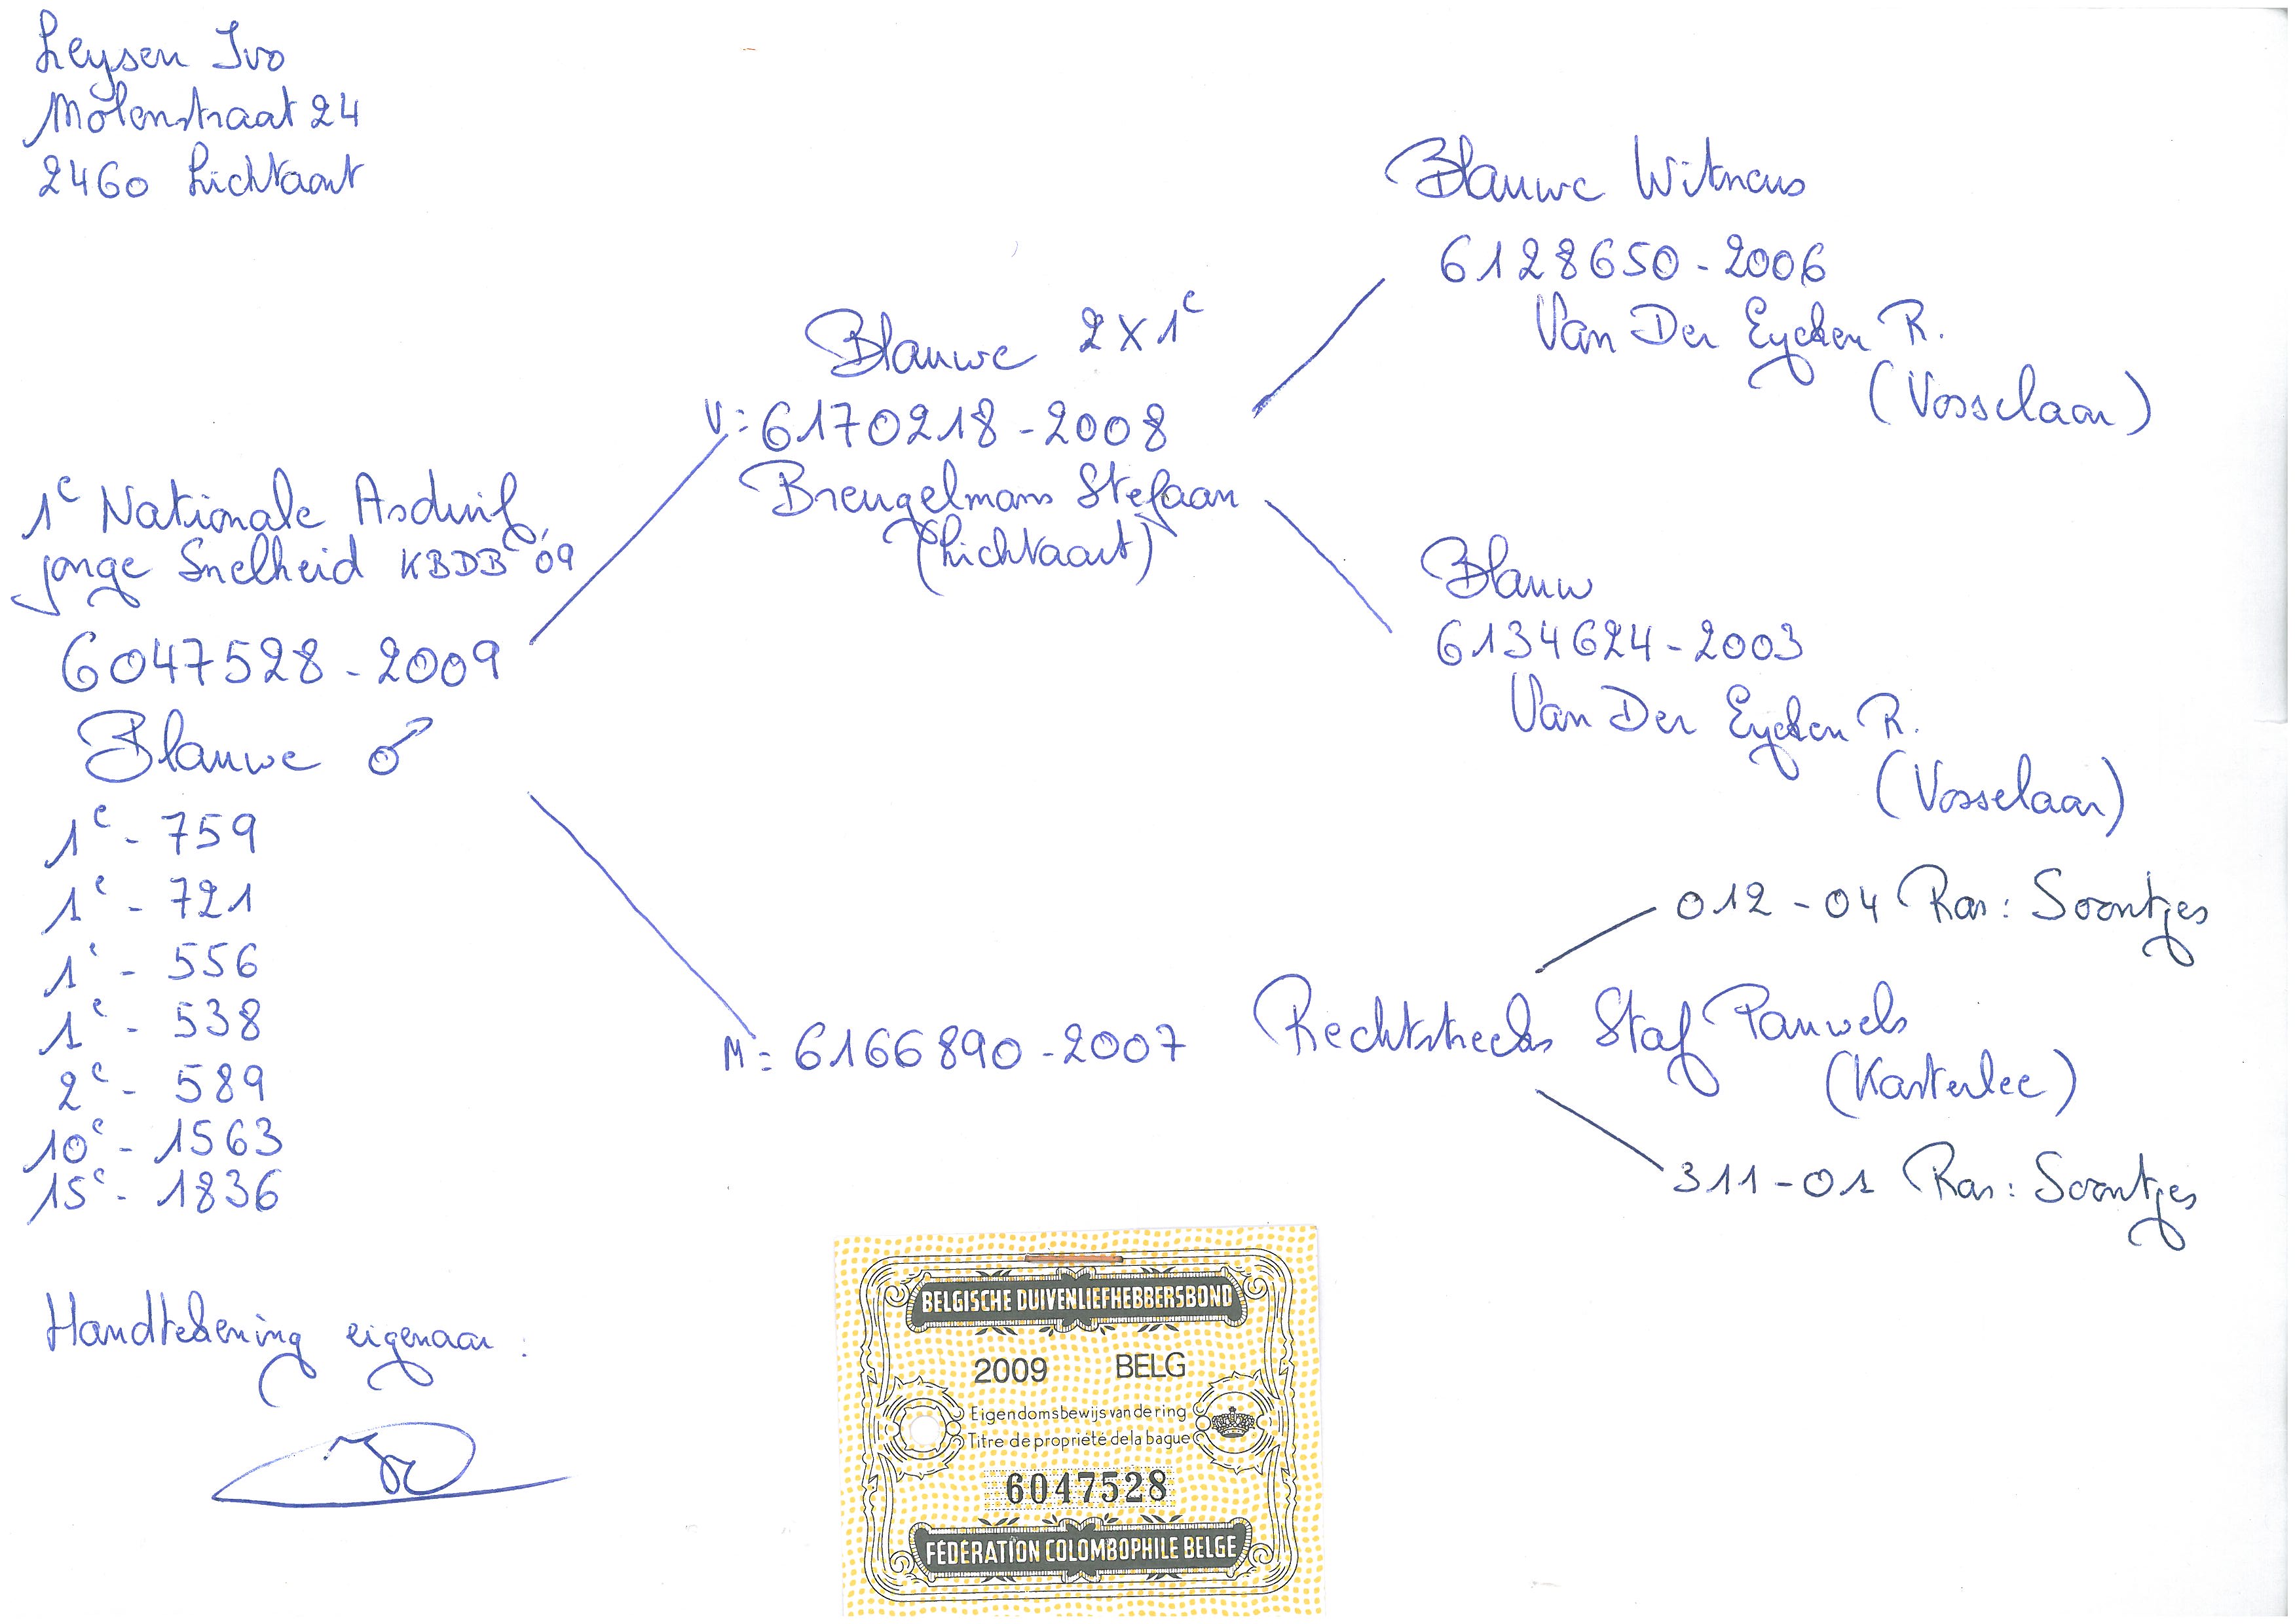 Leysen Ivo
Molenstraat 24
2460 Lichtaart
1e Nationale Asduif
jonge Snelheid KBDB '09
6047528-2009
Blauwe ♂
1e - 759
1e - 721
1e - 556
1e - 538
2e - 589
10e - 1563
15e - 1836
Handtekening eigenaar :
Blauwe 2x1e
V: 6170218-2008
Breugelmans Stefaan
(Lichtaart)
Blauwe Witneus
6128650-2006
Van Der Eycken R.
(Vosselaar)
Blauw
6134624-2003
Van Der Eycken R.
(Vosselaar)
M: 6166890-2007 Rechtstreeks Staf Pauwels
(Kasterlee)
012-04 Ras: Soontjes
311-01 Ras: Soontjes
BELGISCHE DUIVENLIEFHEBBERSBOND
2009 BELG
Eigendomsbewijs van de ring
Titre de propriété de la bague
6047528
FÉDÉRATION COLOMBOPHILE BELGE